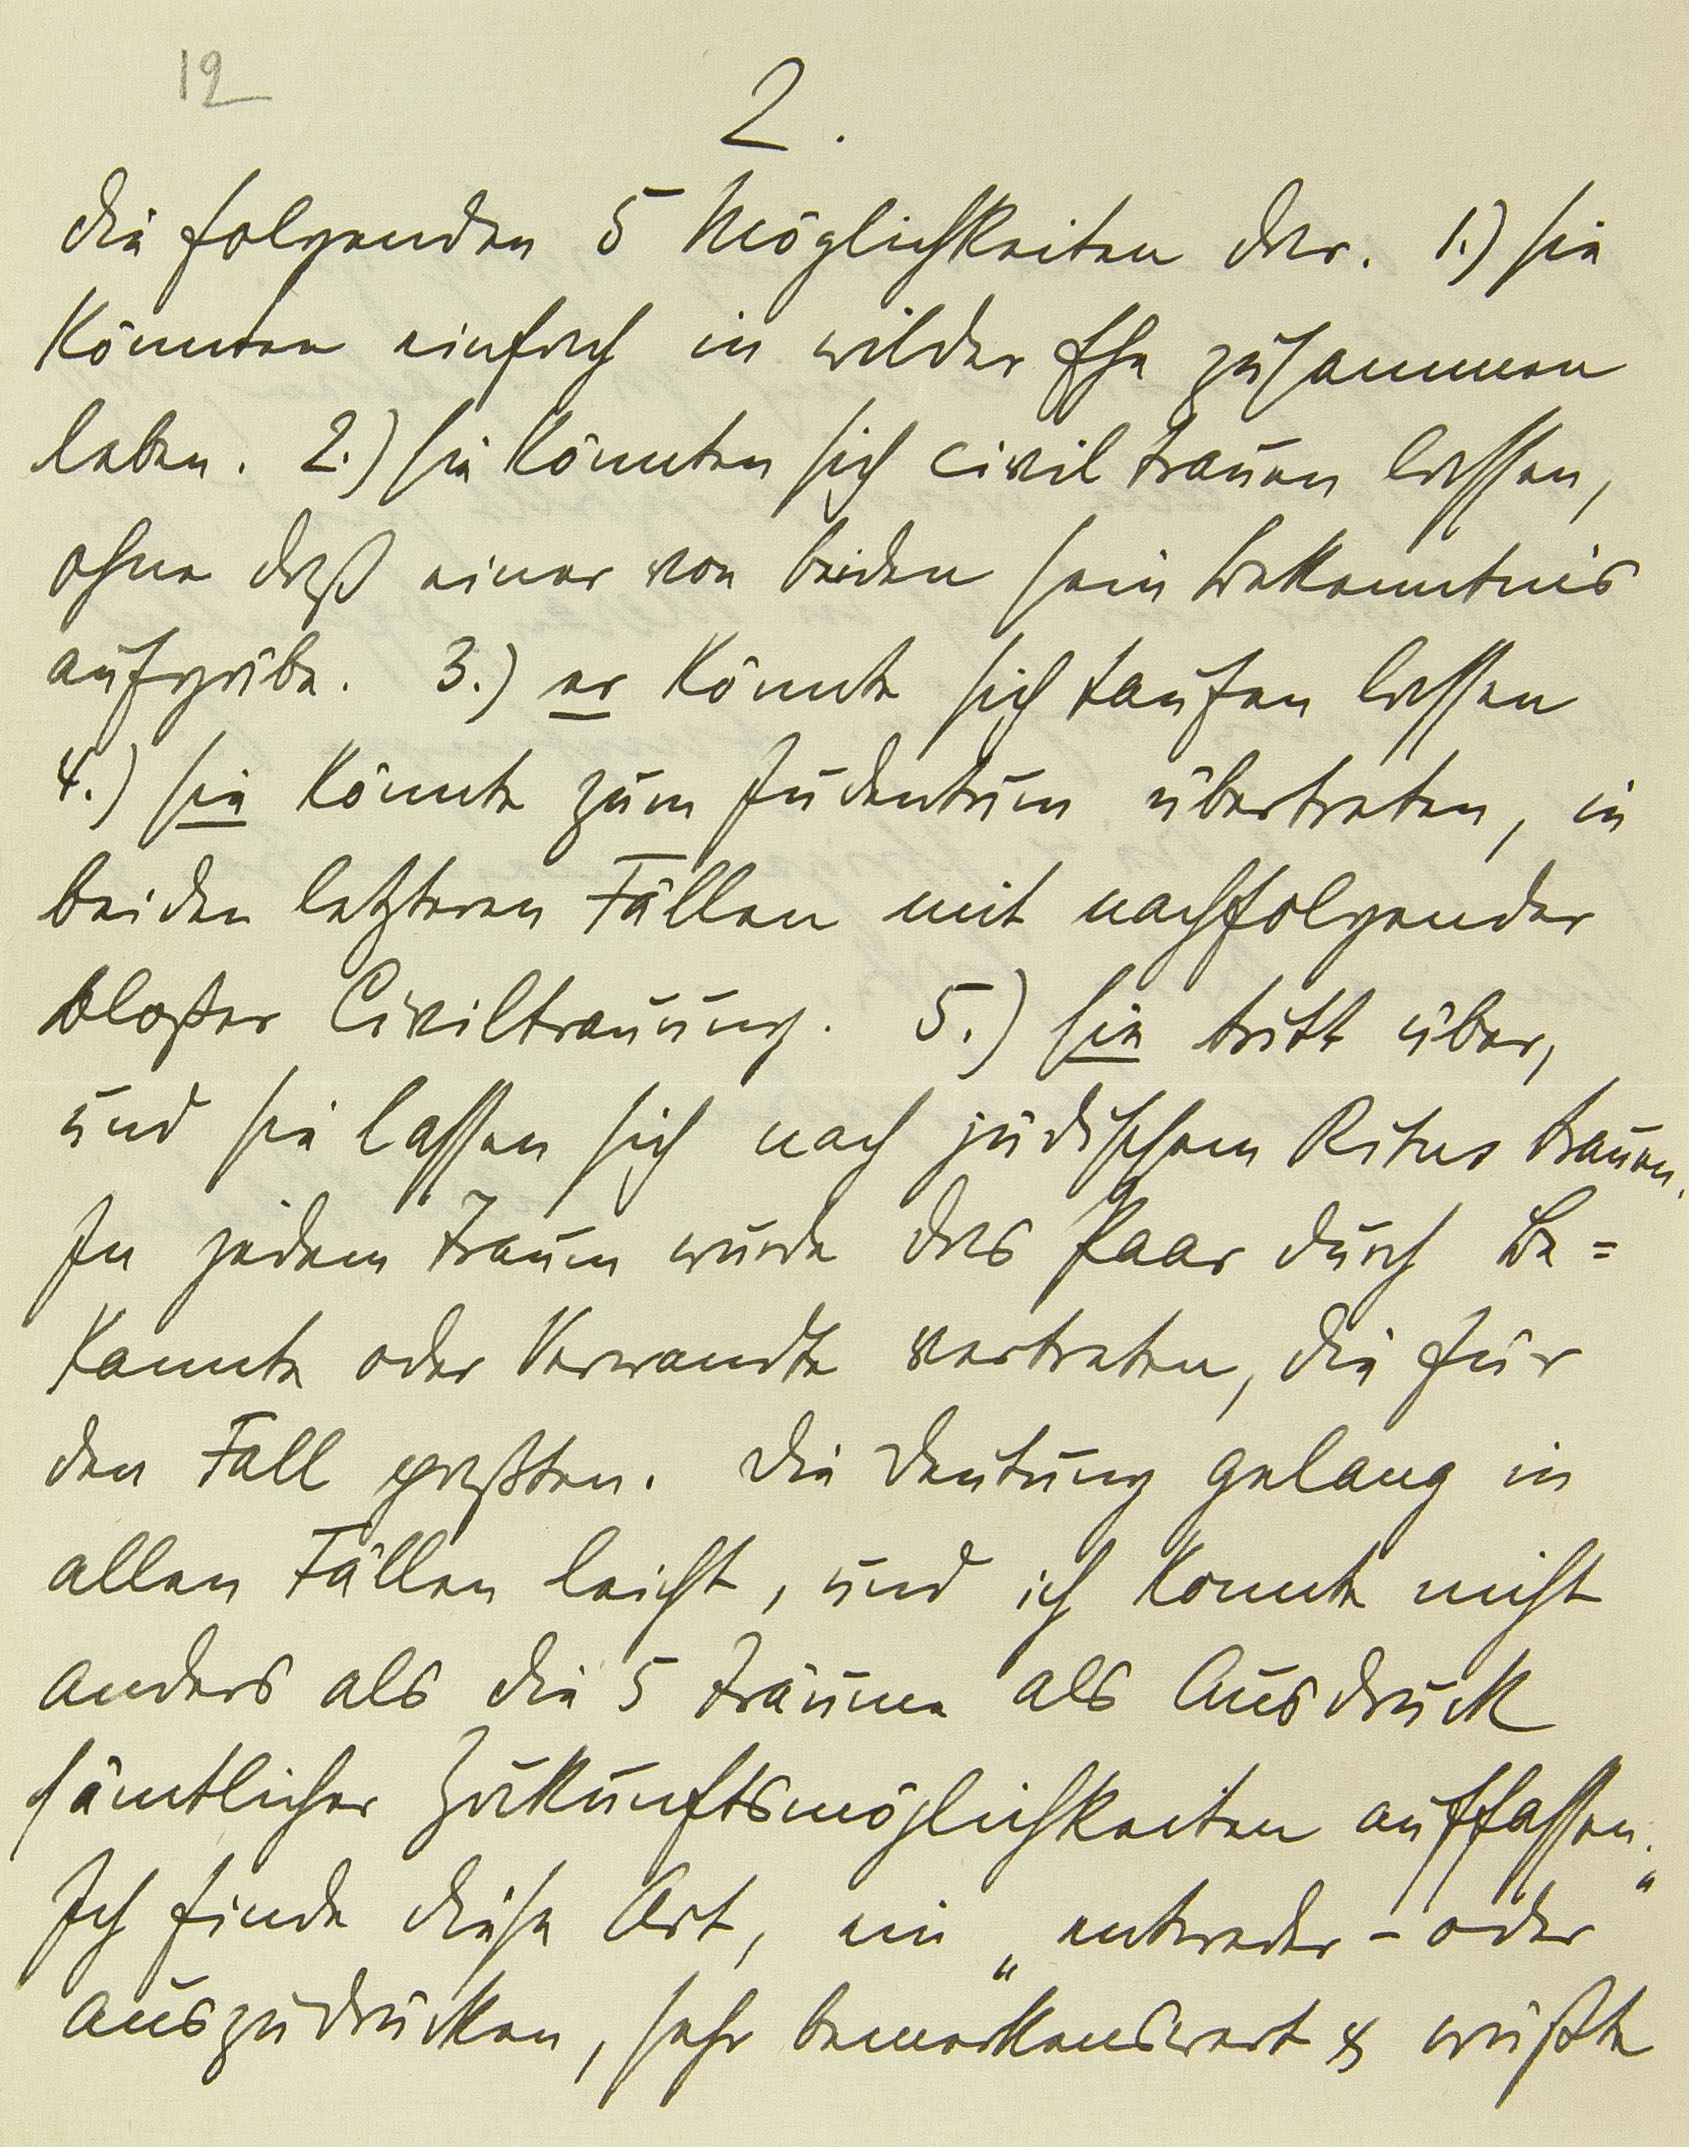 12
2.
die folgenden 5 Möglichkeiten dar. 1.) sie
könnten einfach in wilder Ehe zusammen
leben. 2.) sie könnten sich civil trauen lassen,
ohne daß einer von beiden sein Bekenntnis
aufgäbe. 3.) er könnte sich taufen lassen
4.) sie könnte zum Judentum übertreten, in
beiden letzteren Fällen mit nachfolgender
bloßer Civiltrauung. 5.) sie tritt über,
und sie lassen sich nach jüdischem Ritus trauen.
In jedem Traum wurde das Paar durch Be=
kannte oder Verwandte vertreten, die für
den Fall paßten. Die Deutung gelang in
allen Fällen leicht, und ich konnte nicht
anders als die 5 Träume als Ausdruck
sämtlicher Zukunftsmöglichkeiten auffassen.
Ich finde diese Art, ein „entweder – oder“
auszudrücken, sehr bemerkenswert & wüßte